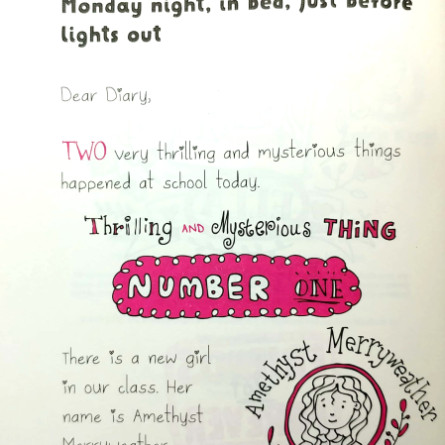 Monday night, in bed, just before
lights out
Dear Diary,
TWO very thrilling and mysterious things
happened at school today.
Thrilling AND Mysterious THING
NUMBER ONE
There is a new girl
in our class. Her
name is Amethyst
Merryweather
Amethyst Merryweather